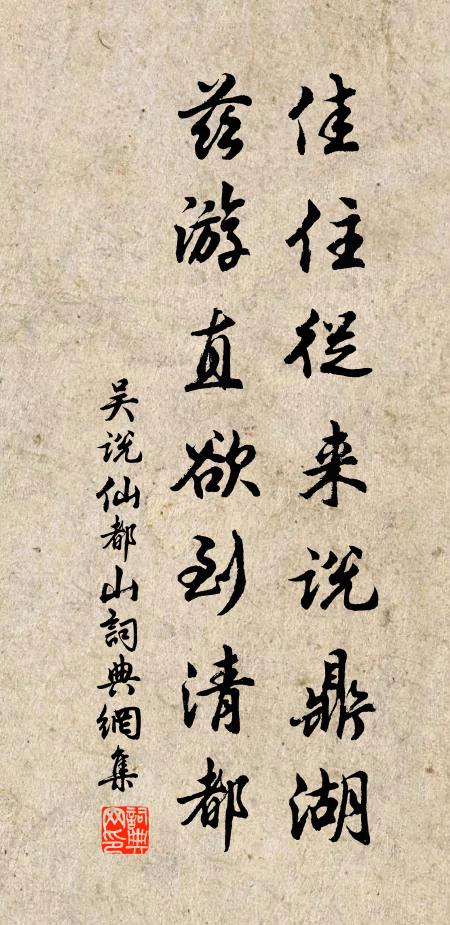 佳住從来説鼎湖
茲游直欲到清都
吴説仙都山詞典網集
詞典網印